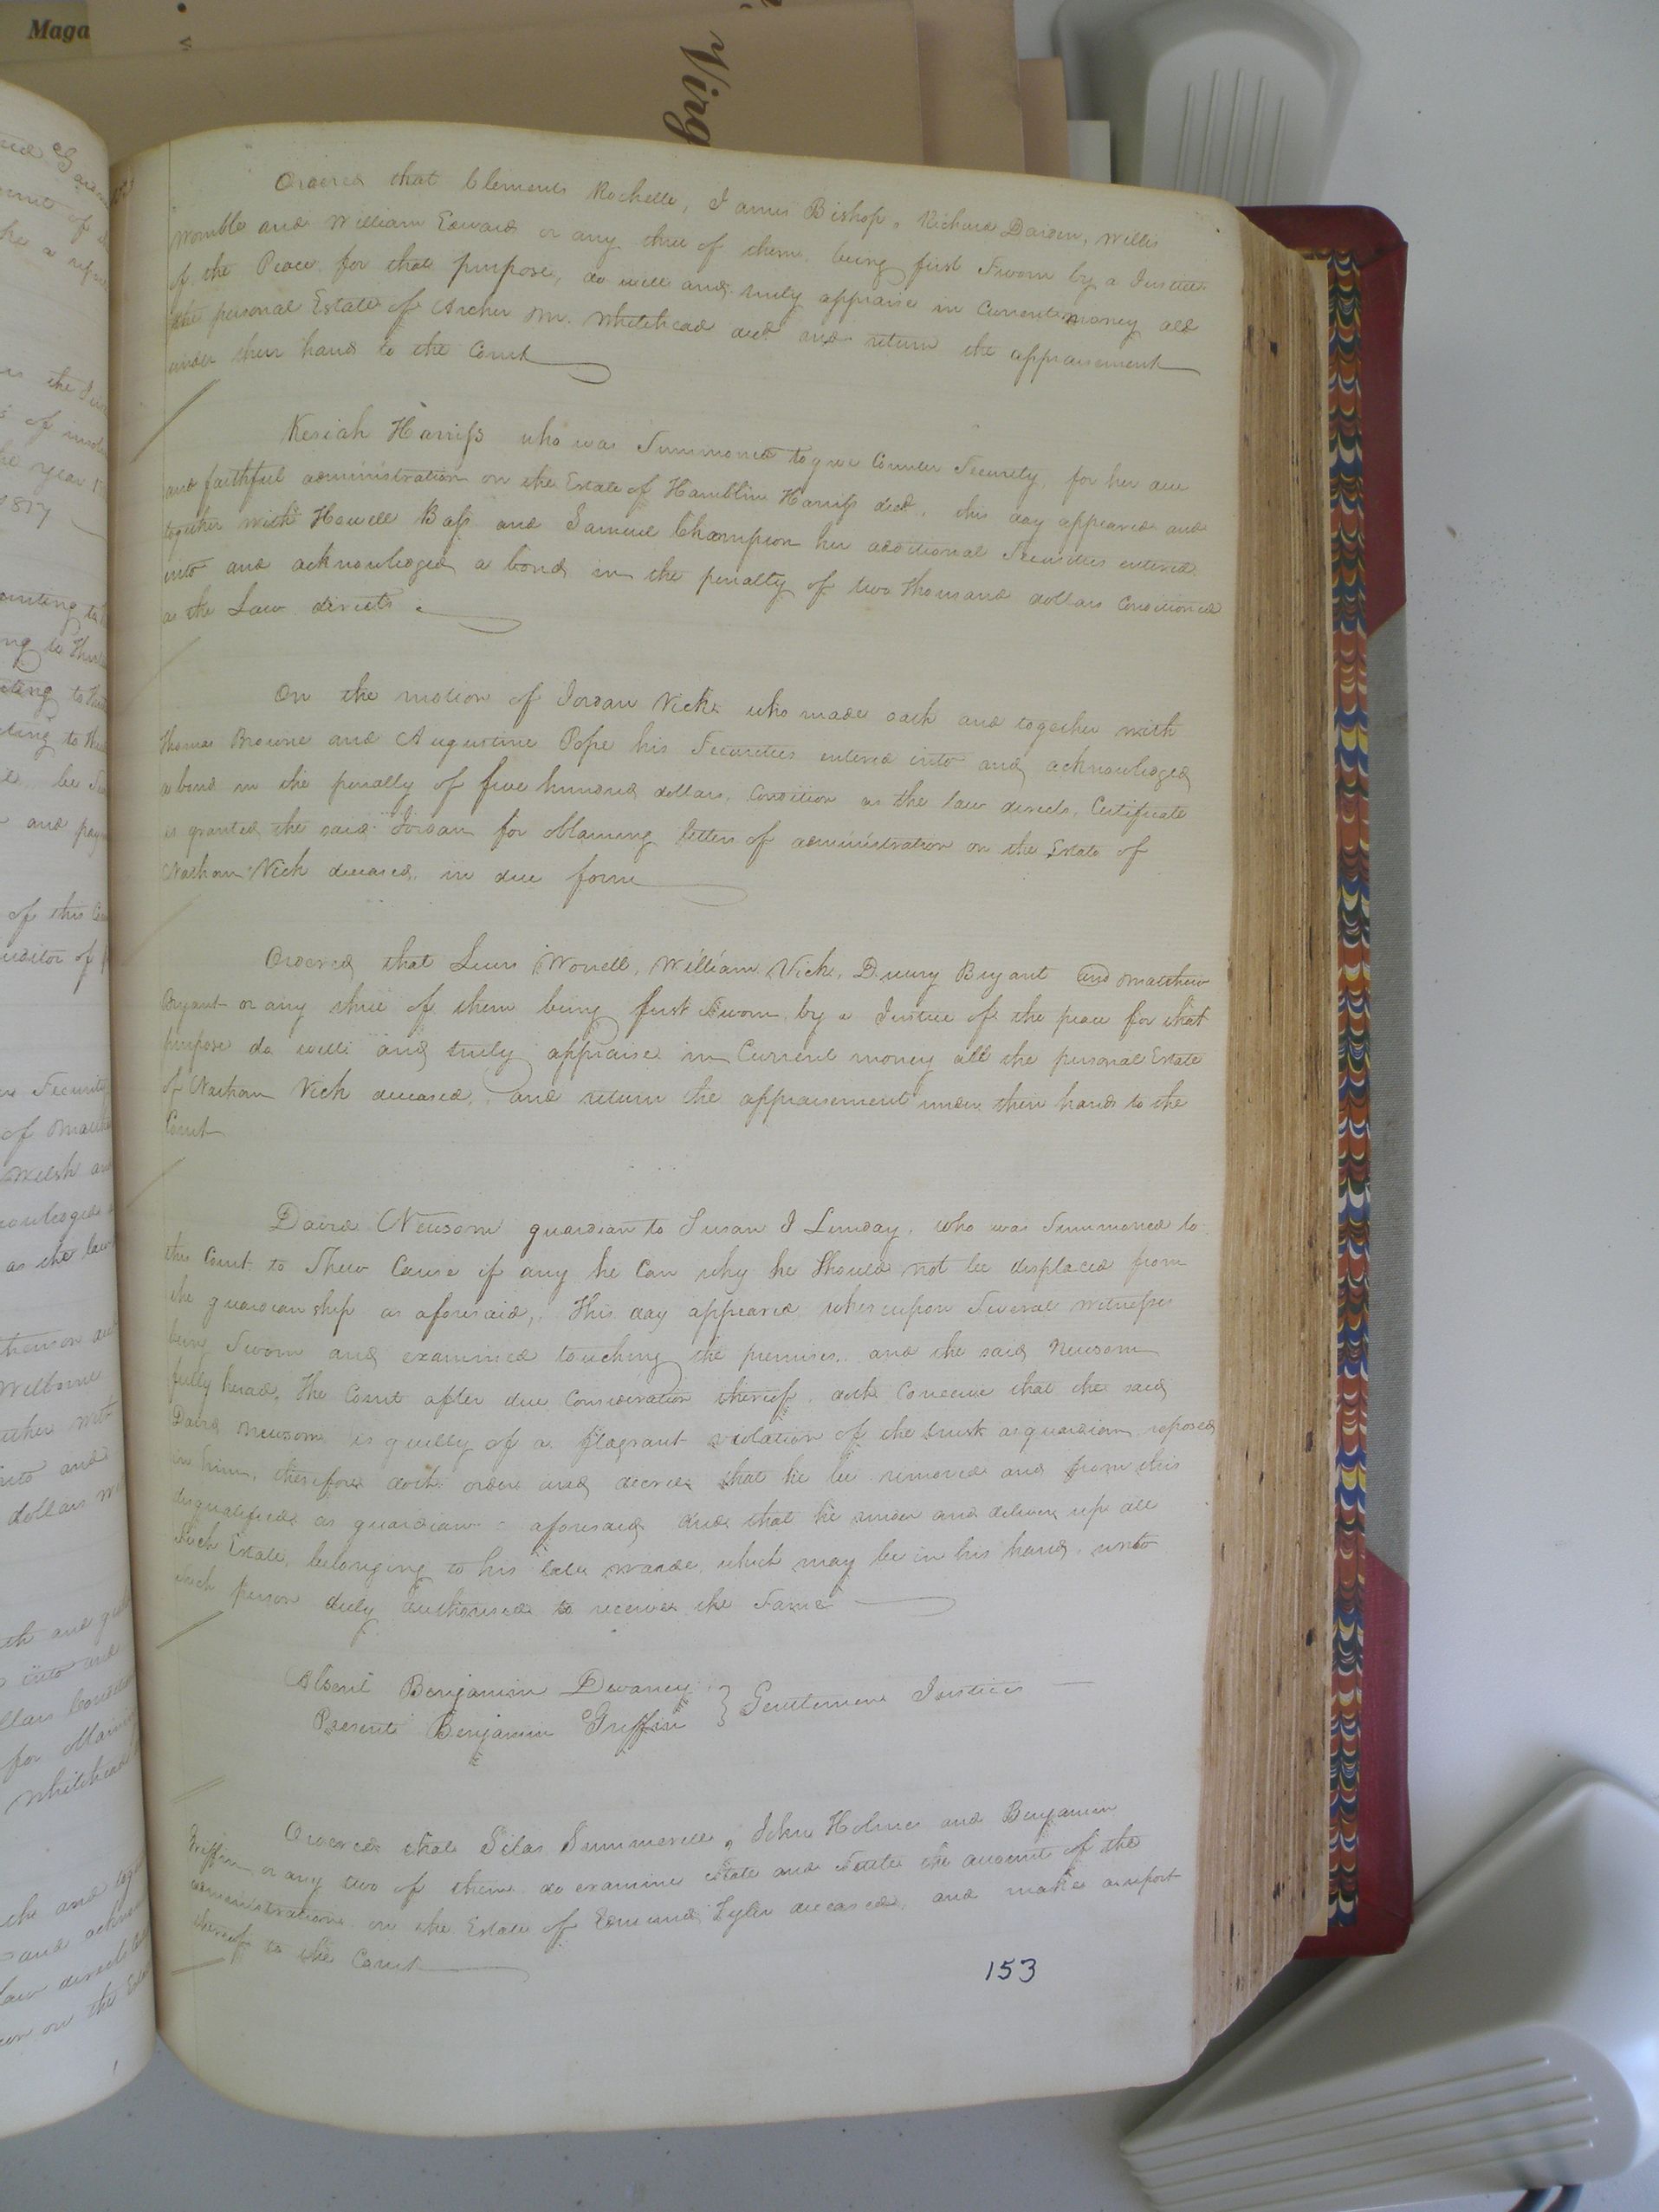 Maga
Virg
Ordered that Clements Rochelle, James Bishop, Richard Darden, Willis
Womble and William Edwards or any three of them being first Sworn by a Justice
of the Peace for that purpose, do well and truly appraise in Current money all
the personal Estate of Archer M. Whitehead decd and return the appraisement
under their hands to the Court
Keziah Harriss who was Summoned to give Counter Security, for her due
and faithful administration on the Estate of Hamblin Harriss decd, this day appeared and
together with Howell Bass and Samuel Champion her additional Securities entered
into and acknowledged a bond in the penalty of two thousand dollars Conditioned
as the Law directs
On the motion of Jordan Vick who made oath and together with
Thomas Browne and Augustine Pope his Securities entered into and acknowledged
a bond in the penalty of five hundred dollars, Condition as the law directs, Certificate
is granted the said Jordan for obtaining letters of administration on the Estate of
Nathan Vick deceased, in due form
Ordered that Lewis Worrell, William Vick, Drewry Bryant and Matthew
Bryant or any three of them being first Sworn by a Justice of the peace for that
purpose do well and truly appraise in Current money all the personal Estate
of Nathan Vick deceased, and return the appraisement under their hands to the
Court
David Newsom guardian to Susan J Lunday, who was Summoned to
the Court to Shew Cause if any he Can why he Should not be displaced from
the guardianship as aforesaid, This day appeared whereupon Several witnesses
being Sworn and examined touching the premises, and the said Newsom
fully heard, The Court after due Consideration thereof, doth Conceive that the said
David Newsom is guilty of a flagrant violation of the trust as guardian reposed
in him, therefore doth order and decree that he be removed and from this
disqualified as guardian aforesaid and that he render and deliver up all
Such Estate, belonging to his late warde, which may be in his hands, unto
Such person duly Authorised to receive the Same
Absent Benjamin Devaney } Gentlemen Justices
Present Benjamin Griffin
Ordered that Silas Summerell, John Holmes and Benjamin
Griffin or any two of them do examine State and Settle the account of the
administration on the Estate of Edmund Tyler deceased, and make a report
thereof to the Court
153